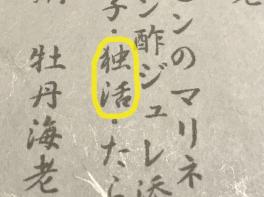 ンのマリネ
ン酢ジュレ添
子・独活・たら
牡丹海老